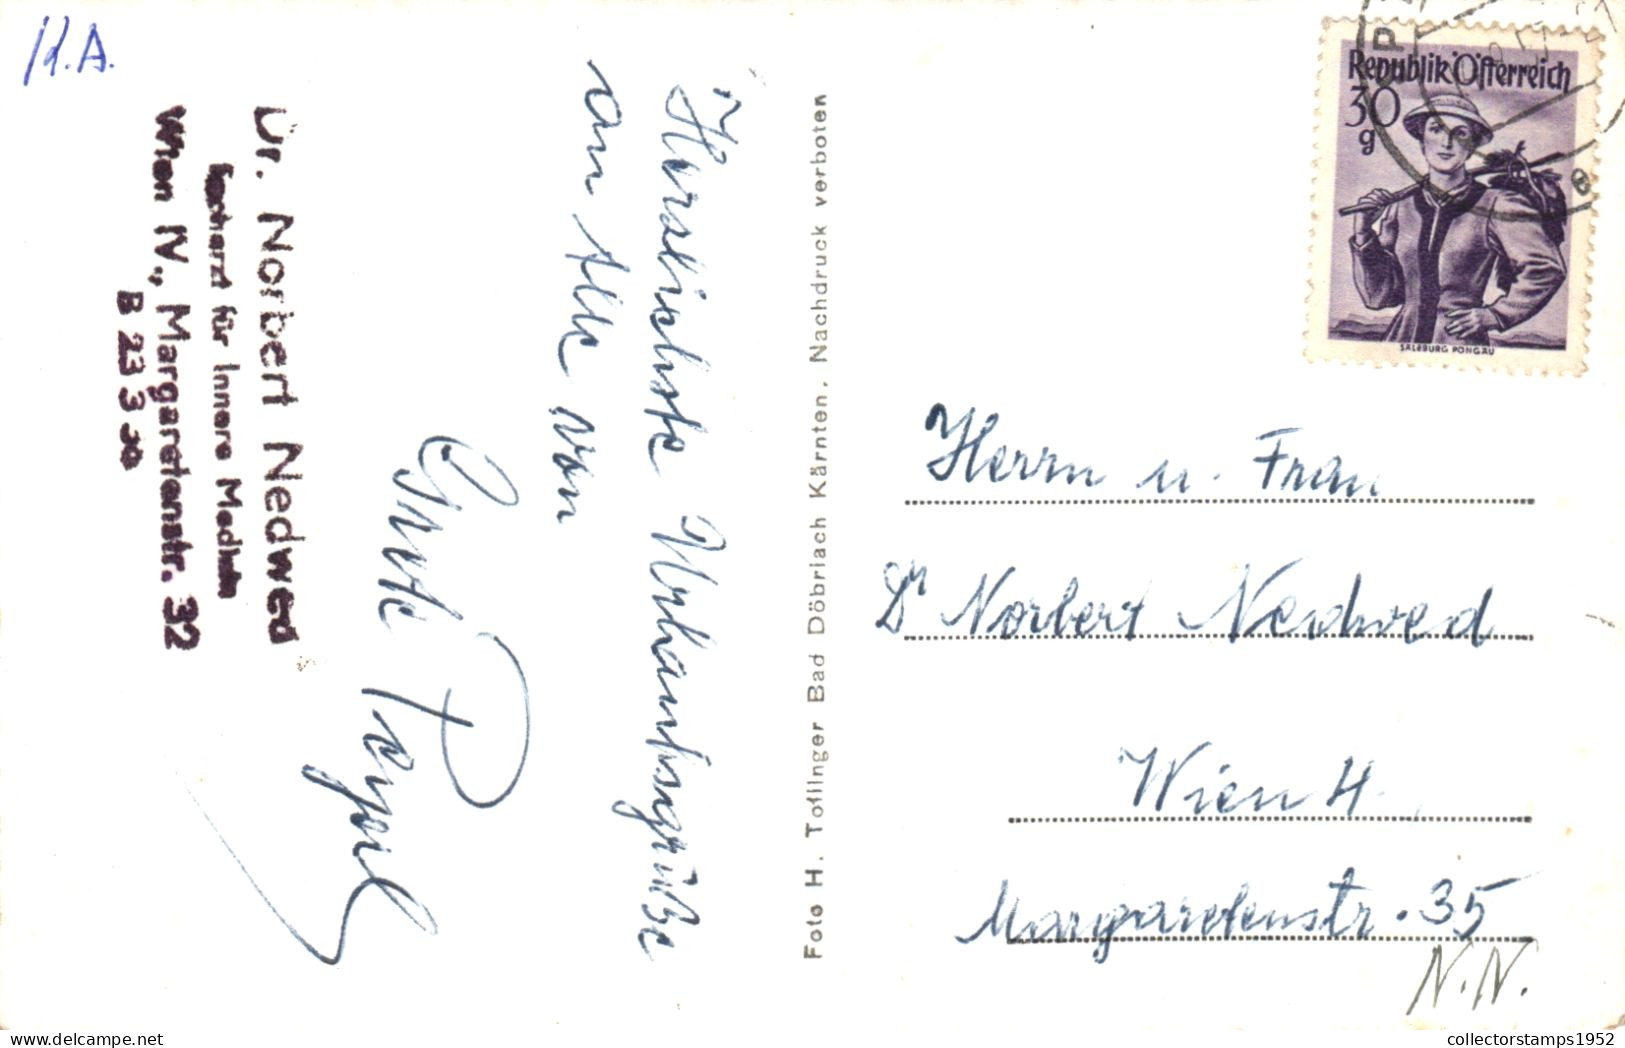 K.A.
Dr. Norbert Nedwed
Facharzt für Innere Medizin
Wien IV., Margaretenstr. 32
B 23 3 30
Herzlichste Urlaubsgrüße
an Alle von
Foto H. Tollinger Bad Döbriach Kärnten. Nachdruck verboten
Republik Österreich
30
g
SALZBURG PONGAU
e
Herrn u. Frau
Dr Norbert Nedwed
Wien 4.
Margaretenstr. 35
N.N.
delcampe.net
collectorstamps1952